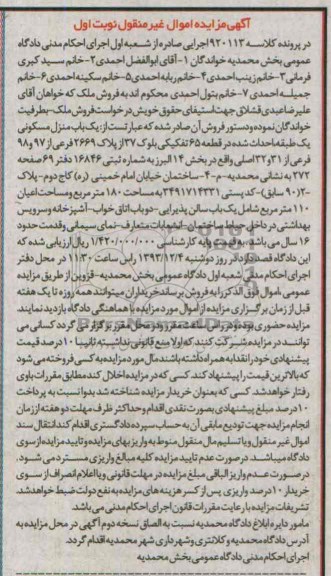 آگهی مزایده اموال غیر منقول نوبت اول
در پرونده کلاسه ۹۲۰۱۱۳ اجرایی صادره از شعبه اول اجرای احکام مدنی دادگاه
عمومی بخش محمدیه خواندگان ۱-آقای ابوالفضل احمدی ۲-خانم سید کبری
فرمانی ۳-خانم زینب احمدی ۴-خانم ربابه احمدی ۵-خانم سکینه احمدی ۶-خانم
جمیله احمدی ۷-خانم بتول احمدی محکوم اند به فروش ملک که خواهان آقای
علیرضا عبدی قشلاق جهت استیفای حقوق خویش درخواست فروش ملک-بطرفیت
خواندگان نموده و دستور فروش آن صادر شده که عبارتست از: یک باب منزل مسکونی
یک طبقه احداث شده در قطعه ۶۵ تفکیکی بلوک ۳۷ از پلاک ۲۶۶۹ فرعی از ۹۷ و ۹۸
فرعی از ۳۱ و ۳۲ اصلی واقع در بخش ۱۴ البرز به شماره ثبتی ۱۶۸۴۶ دفتر ۶۹ صفحه
۲۷۲ به نشانی محمدیه-م-۴-ساختمان خیابان امام خمینی (ره) کاج دوم-پلاک
۲-(۹۰ سابق)-کد پستی ۳۴۹۱۷۱۴۳۳۱ به مساحت ۱۸۰ متر مربع و مساحت اعیان
۱۱۰ متر مربع شامل یک باب سالن پذیرایی-دو باب اتاق خواب-آشپزخانه و سرویس
بهداشتی در داخل حیاط ساختمان-انشعابات متعارف-نمای سیمانی و قدمت حدود
۱۶ سال می باشد، به قیمت و پایه کارشناسی ۱/۴۲۰/۰۰۰/۰۰۰ ریال ارزیابی شده که
این دادگاه قصد دارد در روز دوشنبه ۱۳۹۳/۱۲/۴ راس ساعت ۱۱:۳۰ در محل دفتر
اجرای احکام مدنی شعبه اول دادگاه عمومی بخش محمدیه-قزوین از طریق مزایده
عمومی، اموال فوق الذکر را به فروش برساند خریداران میتوانند همه روزه تا یک هفته
قبل از زمان برگزاری مزایده از اموال مورد مزایده با هماهنگی دادگاه بازدید نمایند.
مزایده حضوری بوده و در راس ساعت مقرر و در محل مقرر برگزار می گردد کسانی می
توانند در مزایده شرکت کنند که اولا منع قانونی نداشته ثانیا ۱۰ درصد قیمت
پیشنهادی خود را نقدا به همراه داشته باشند مال مورد مزایده به کسی فروخته می شود
که بالاترین قیمت را پیشنهاد کند. کسی که در مزایده اخلال کند مطابق مقررات با وی
رفتار خواهد شد. کسی که بعنوان خریدار مزایده شناخته شد بدوا نسبت به پرداخت
۱۰ درصد مبلغ پیشنهادی بصورت نقدی اقدام و حداکثر ظرف مهلت دو هفته از زمان
انجام مزایده جهت تودیع مابقی آن به حساب سپرده دادگستری اقدام کند انتقال سند
اموال غیر منقول و یا تسلیم مال منقول منوط به واریز بهای مزایده و تایید مزایده از سوی
دادگاه میباشد. در صورت عدم تایید مزایده کلیه مبالغ واریزی مسترد می شود.
در صورت عدم واریز الباقی مبلغ مزایده در مهلت قانونی و یا اعلام انصراف از سوی
خریدار ۱۰ درصد واریزی پس از کسر هزینه های مزایده به نفع دولت ضبط خواهد شد.
تشریفات مزایده با رعایت مقررات قانون اجرای احکام مدنی می باشد.
مامور دایره ابلاغ دادگاه محمدیه نسبت به الصاق نسخه دوم آگهی در محل مزایده به
آدرس دادگاه محمدیه و کلانتری و شهرداری شهر محمدیه اقدام گردد.
اجرای احکام مدنی دادگاه عمومی بخش محمدیه